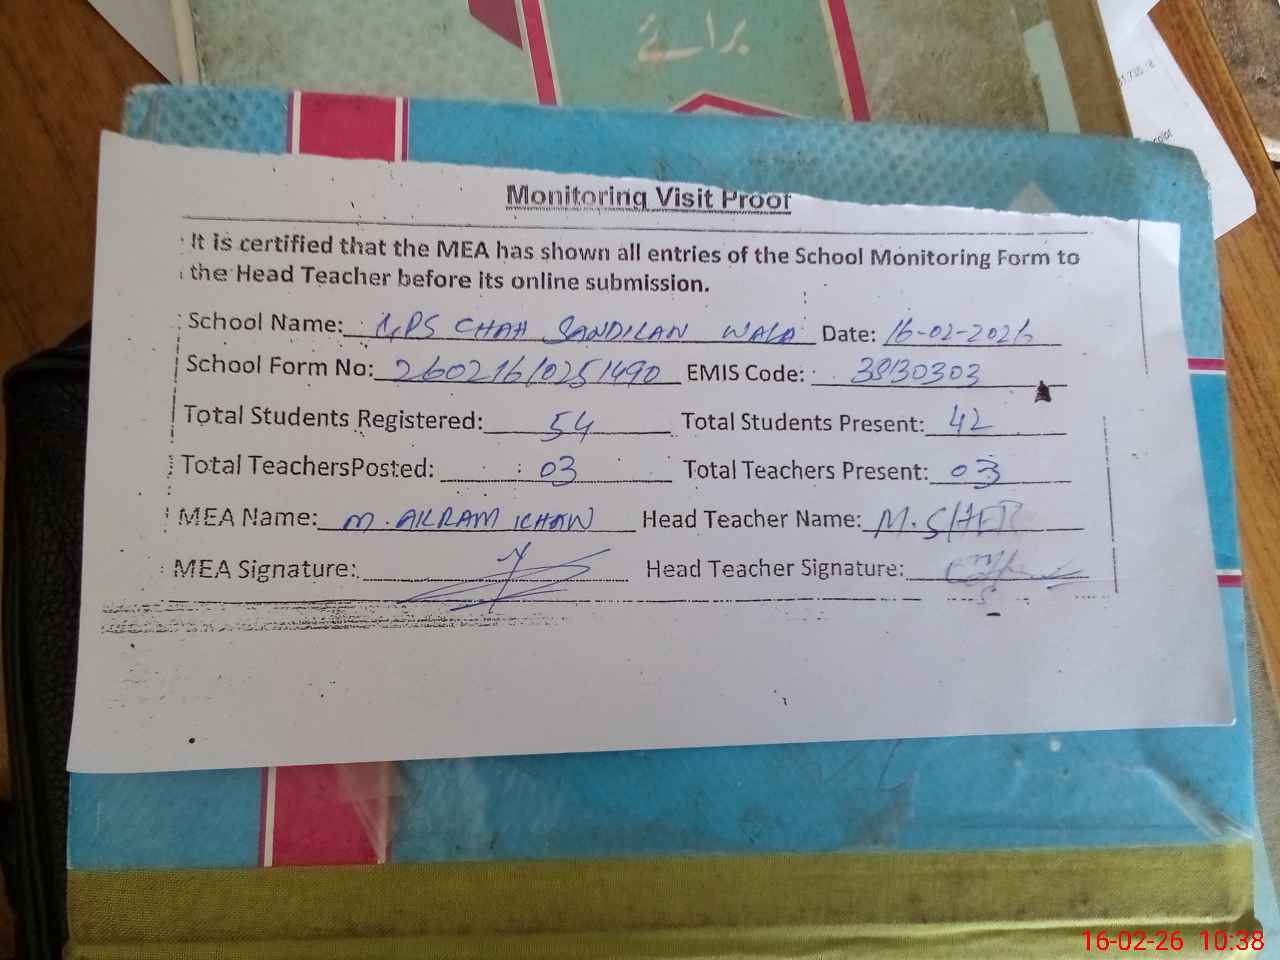 برائے
Monitoring Visit Proof
It is certified that the MEA has shown all entries of the School Monitoring Form to
the Head Teacher before its online submission.
School Name: GPS CHAH SANDILAN WALA Date: 16-02-2026
School Form No: 26021610251490 EMIS Code: 38130303
Total Students Registered: 54 Total Students Present: 42
Total TeachersPosted: 03 Total Teachers Present: 03
MEA Name: M. AKRAM KHAN Head Teacher Name: M. SHER
MEA Signature: Head Teacher Signature:
16-02-26 10:38